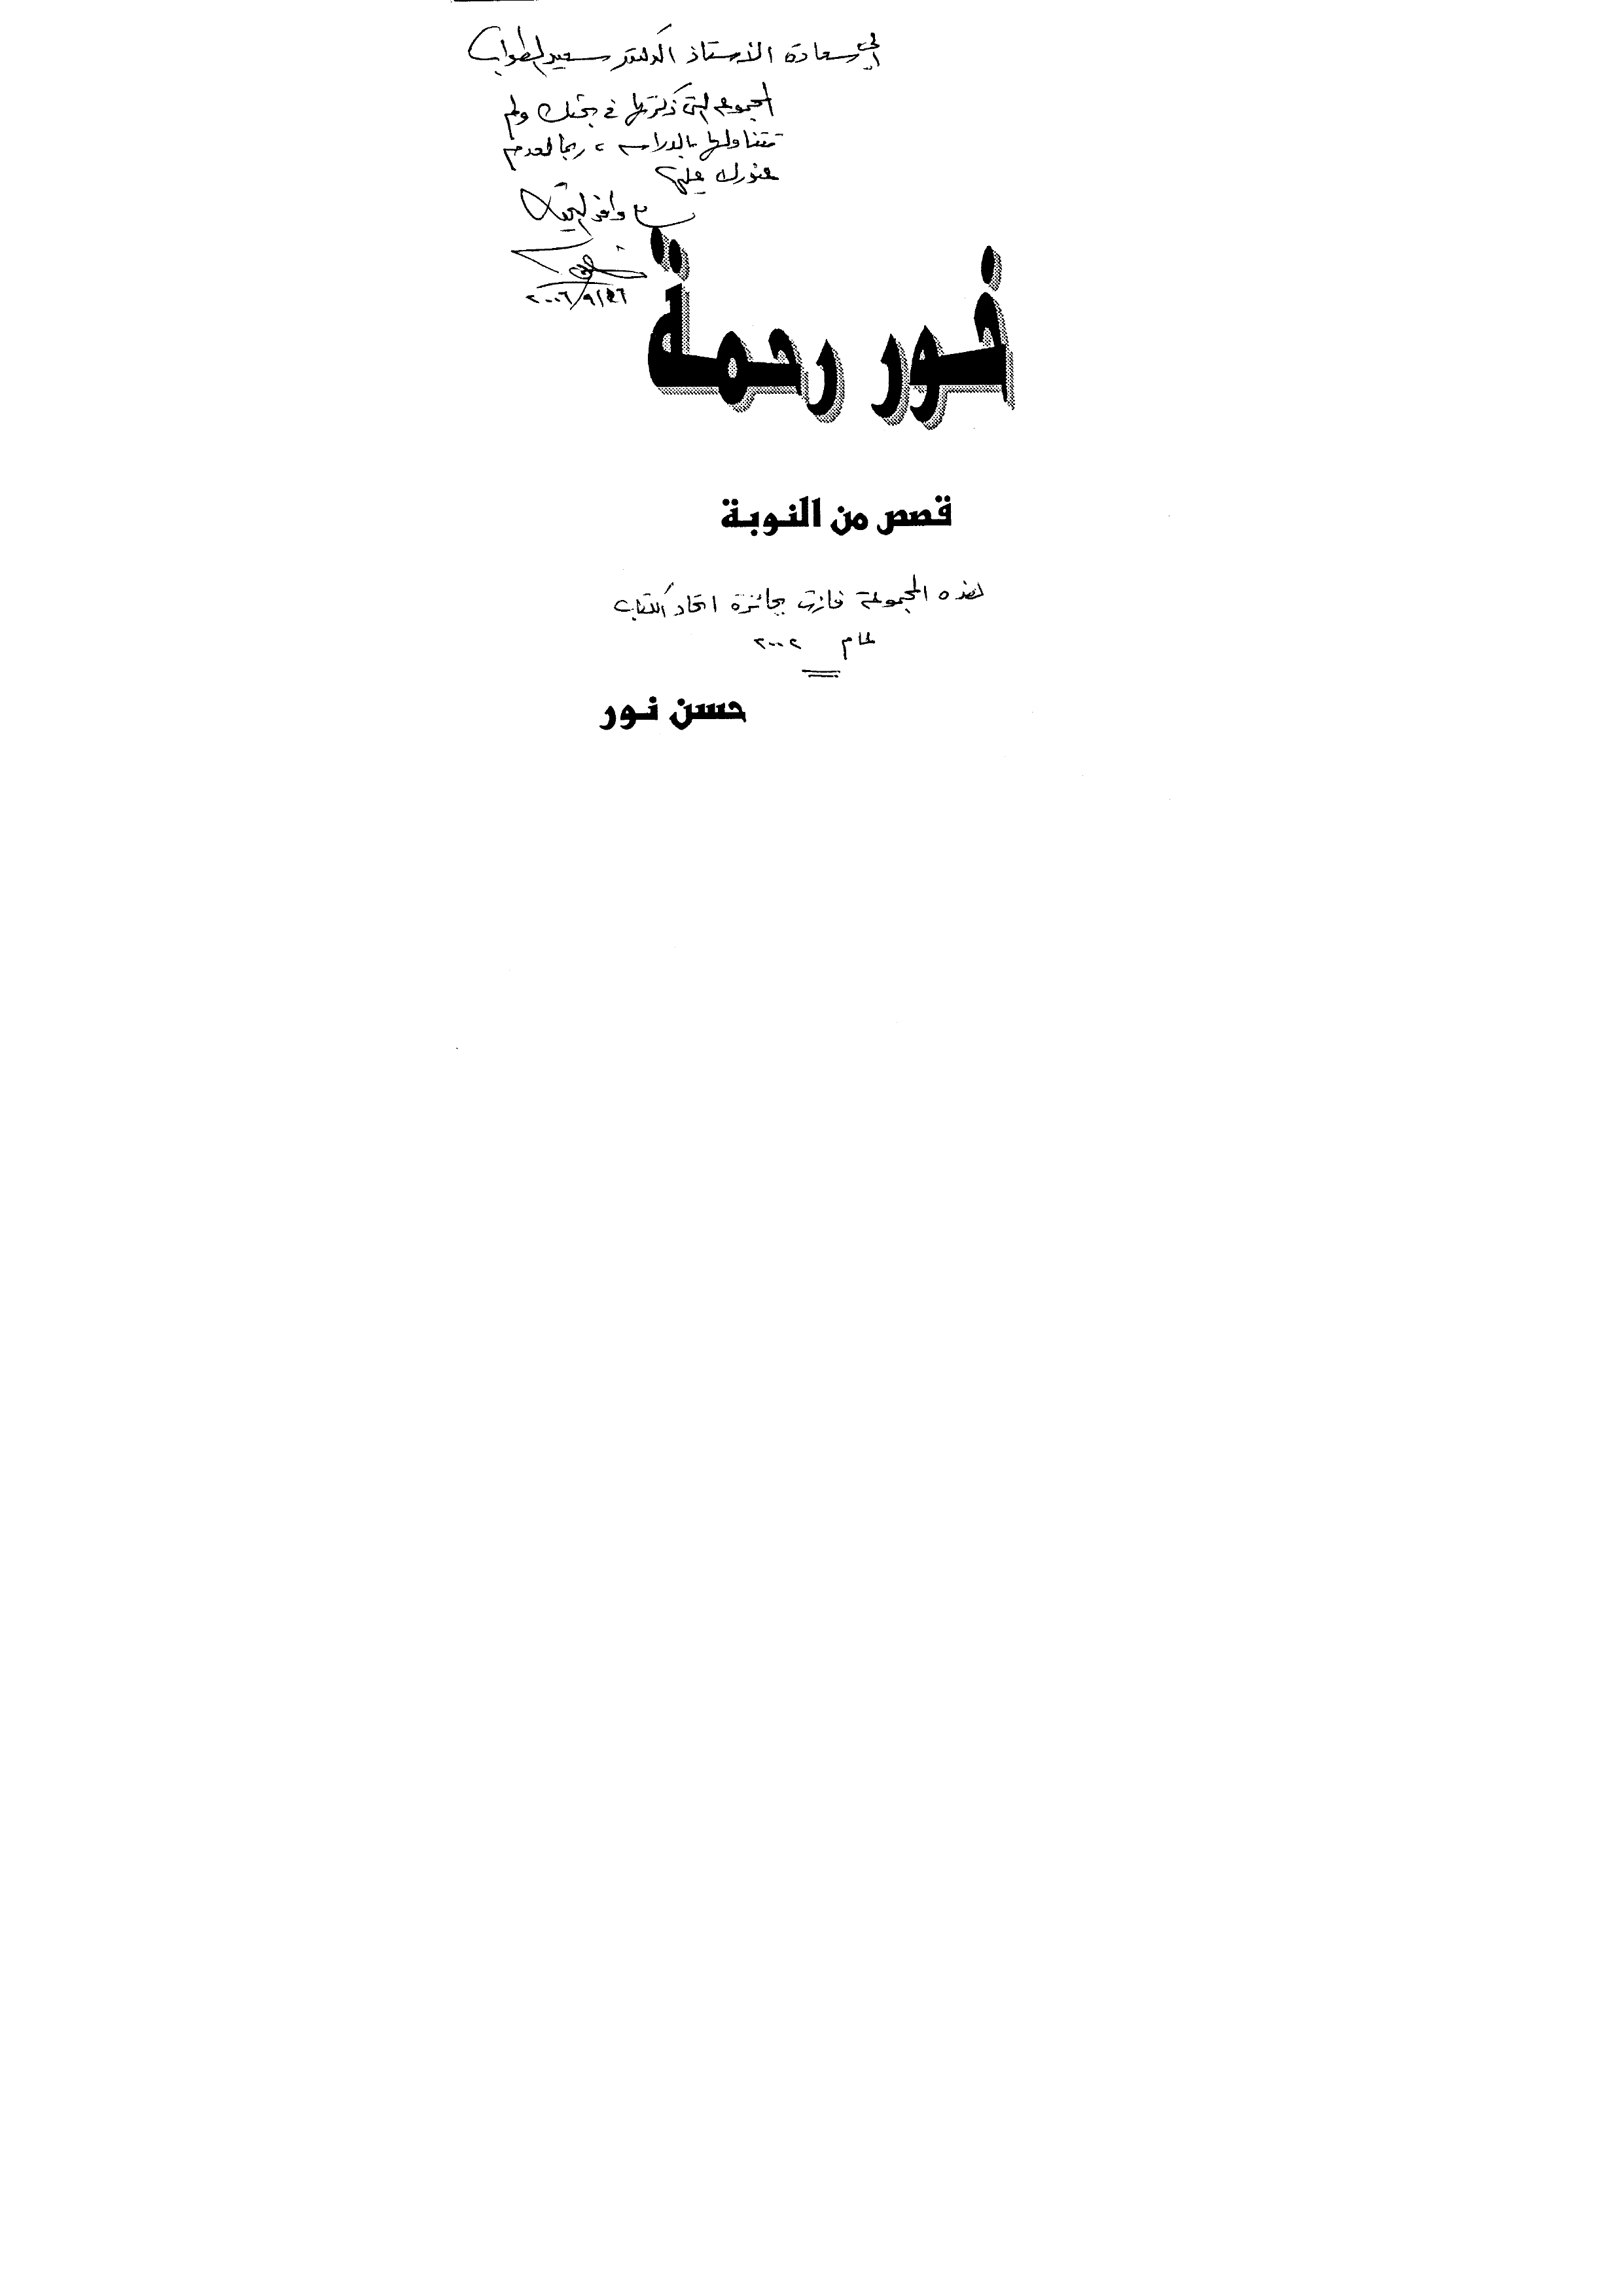 إلى سعادة الأستاذ الدكتور سعيد الطواب
المجموعه التى ذكرتها فى بحثك ولم
تتناولها بالدراسه، ربما لعدم
عثورك عليها
مع وافر التحية
٢٠٠٦/٩/٢٦
خور رحمة
قصص من النوبة
هذه المجموعة فازت بجائزة اتحاد الكتاب
لعام ٢٠٠٢
حسن نور